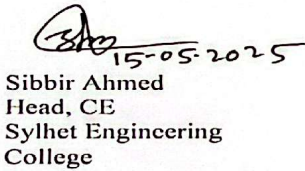 15-05-2025
Sibbir Ahmed
Head, CE
Sylhet Engineering
College